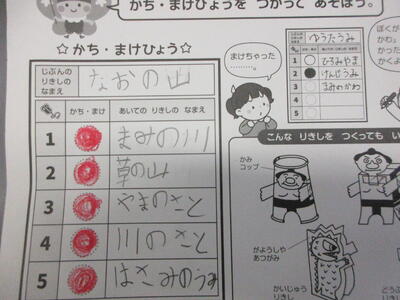 かち・まけひょうを つかって あそぼう。
☆ かち・まけひょう ☆
じぶんの
りきしの
なまえ
なおの山
かち・まけ
あいての りきしの なまえ
1 まみの川
2 草の山
3 やまのさと
4 川のさと
5 はさみのうみ
まけちゃった
………。
ゆうたうみ
1 ひろみやま
2 けんじうみ
3 まみのかわ
4
5
こんな りきしを つくっても い
かみ
コップ
がようしや
あつがみ
かいじゅう
りきし